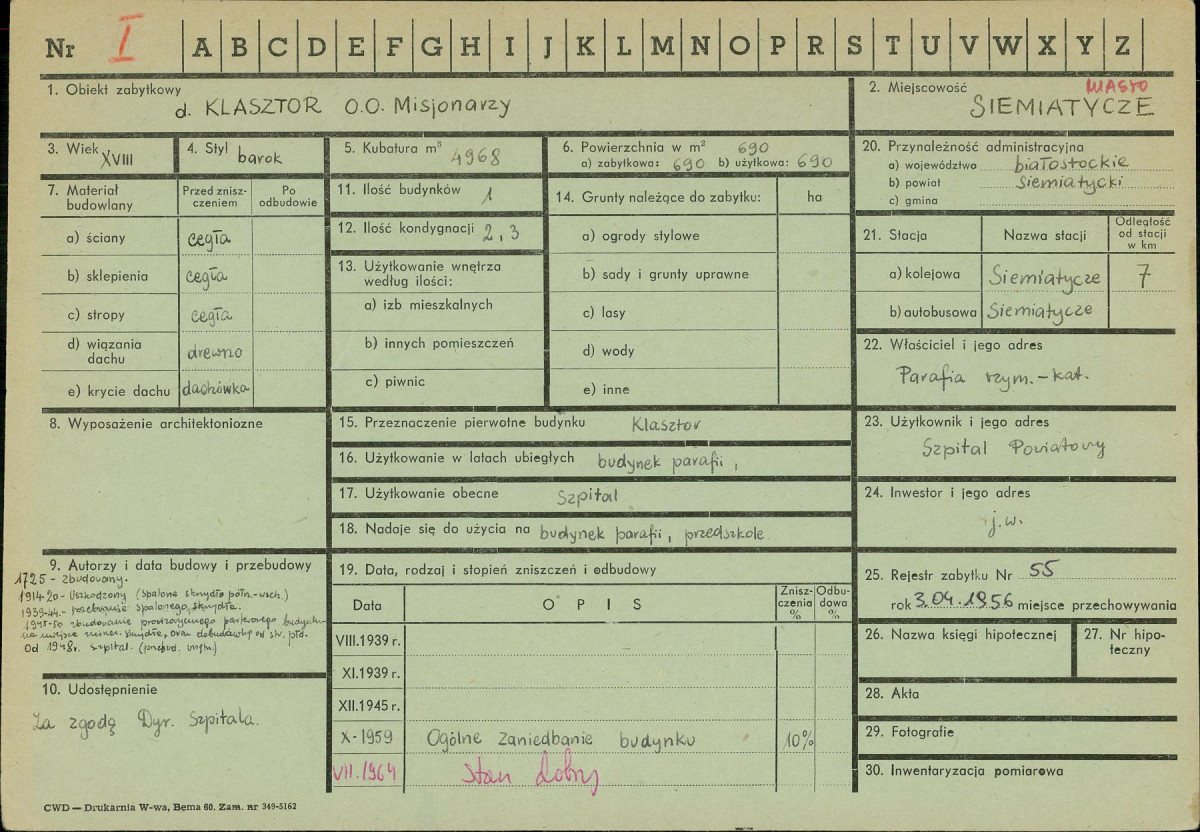 Nr I A B C D E F G H I J K L M N O P R S T U V W X Y Z
1. Obiekt zabytkowy
d. KLASZTOR O.O. Misjonarzy
2. Miejscowość MIASTO
SIEMIATYCZE
3. Wiek XVIII
4. Styl barok
5. Kubatura m³ 4968
6. Powierzchnia w m² 690
a) zabytkowa: 690 b) użytkowa: 690
20. Przynależność administracyjna
a) województwo białostockie
b) powiat Siemiatycki
c) gmina
7. Materiał budowlany
Przed zniszczeniem
Po odbudowie
a) ściany cegła
b) sklepienia cegła
c) stropy cegła
d) wiązania dachu drewno
e) krycie dachu dachówka
11. Ilość budynków 1
12. Ilość kondygnacji 2, 3
13. Użytkowanie wnętrza
według ilości:
a) izb mieszkalnych
b) innych pomieszczeń
c) piwnic
14. Grunty należące do zabytku: ha
a) ogrody stylowe
b) sady i grunty uprawne
c) lasy
d) wody
e) inne
21. Stacja
Nazwa stacji
Odległość od stacji w km
a) kolejowa Siemiatycze 7
b) autobusowa Siemiatycze
22. Właściciel i jego adres
Parafia rzym.-kat.
8. Wyposażenie architektoniozne
15. Przeznaczenie pierwotne budynku Klasztor
16. Użytkowanie w latach ubiegłych budynek parafii,
17. Użytkowanie obecne Szpital
18. Nadaje się do użycia na budynek parafii, przedszkole.
23. Użytkownik i jego adres
Szpital Powiatowy
24. Inwestor i jego adres
j.w.
9. Autorzy i data budowy i przebudowy
1725 - zbudowany.
1914-20 - Uszkodzony (spalone skrzydło półn.-wsch.)
1939-44 - rozebranie spalonego skrzydła.
1945-50 zbudowanie prowizorycznego parterowego budynku
na miejsce zniszcz. skrzydła, oraz dobudówkę od str. płd.
Od 1948r. szpital. (przebud. wnętrz.)
10. Udostępnienie
Za zgodą Dyr. Szpitala.
19. Data, rodzaj i stopień zniszczeń i odbudowy
Data
O P I S
Zniszczenia %
Odbudowa %
VIII.1939 r.
XI.1939 r.
XII.1945 r.
X-1959 Ogólne zaniedbanie budynku 10%
VII.1964 stan dobry
25. Rejestr zabytku Nr 55
rok 3.04.1956 miejsce przechowywania
26. Nazwa księgi hipotecznej
27. Nr hipoteczny
28. Akta
29. Fotografie
30. Inwentaryzacja pomiarowa
CWD — Drukarnia W-wa, Bema 60. Zam. nr 349-5162